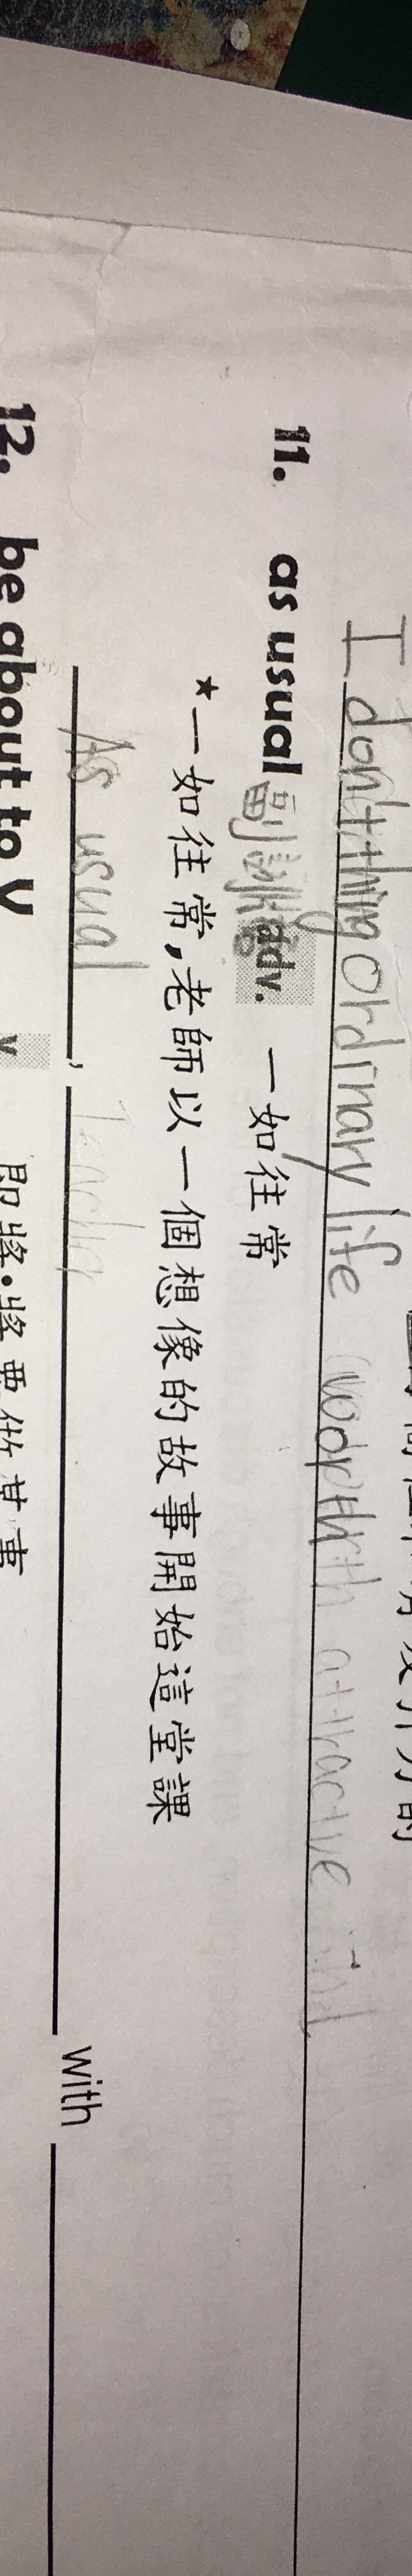 I don't thing ordinary life attractive
11. as usual 副詞 adv. 一如往常
★一如往常,老師以一個想像的故事開始這堂課
As usual, Teacher with
12. be about to V v 即將·將要做某事